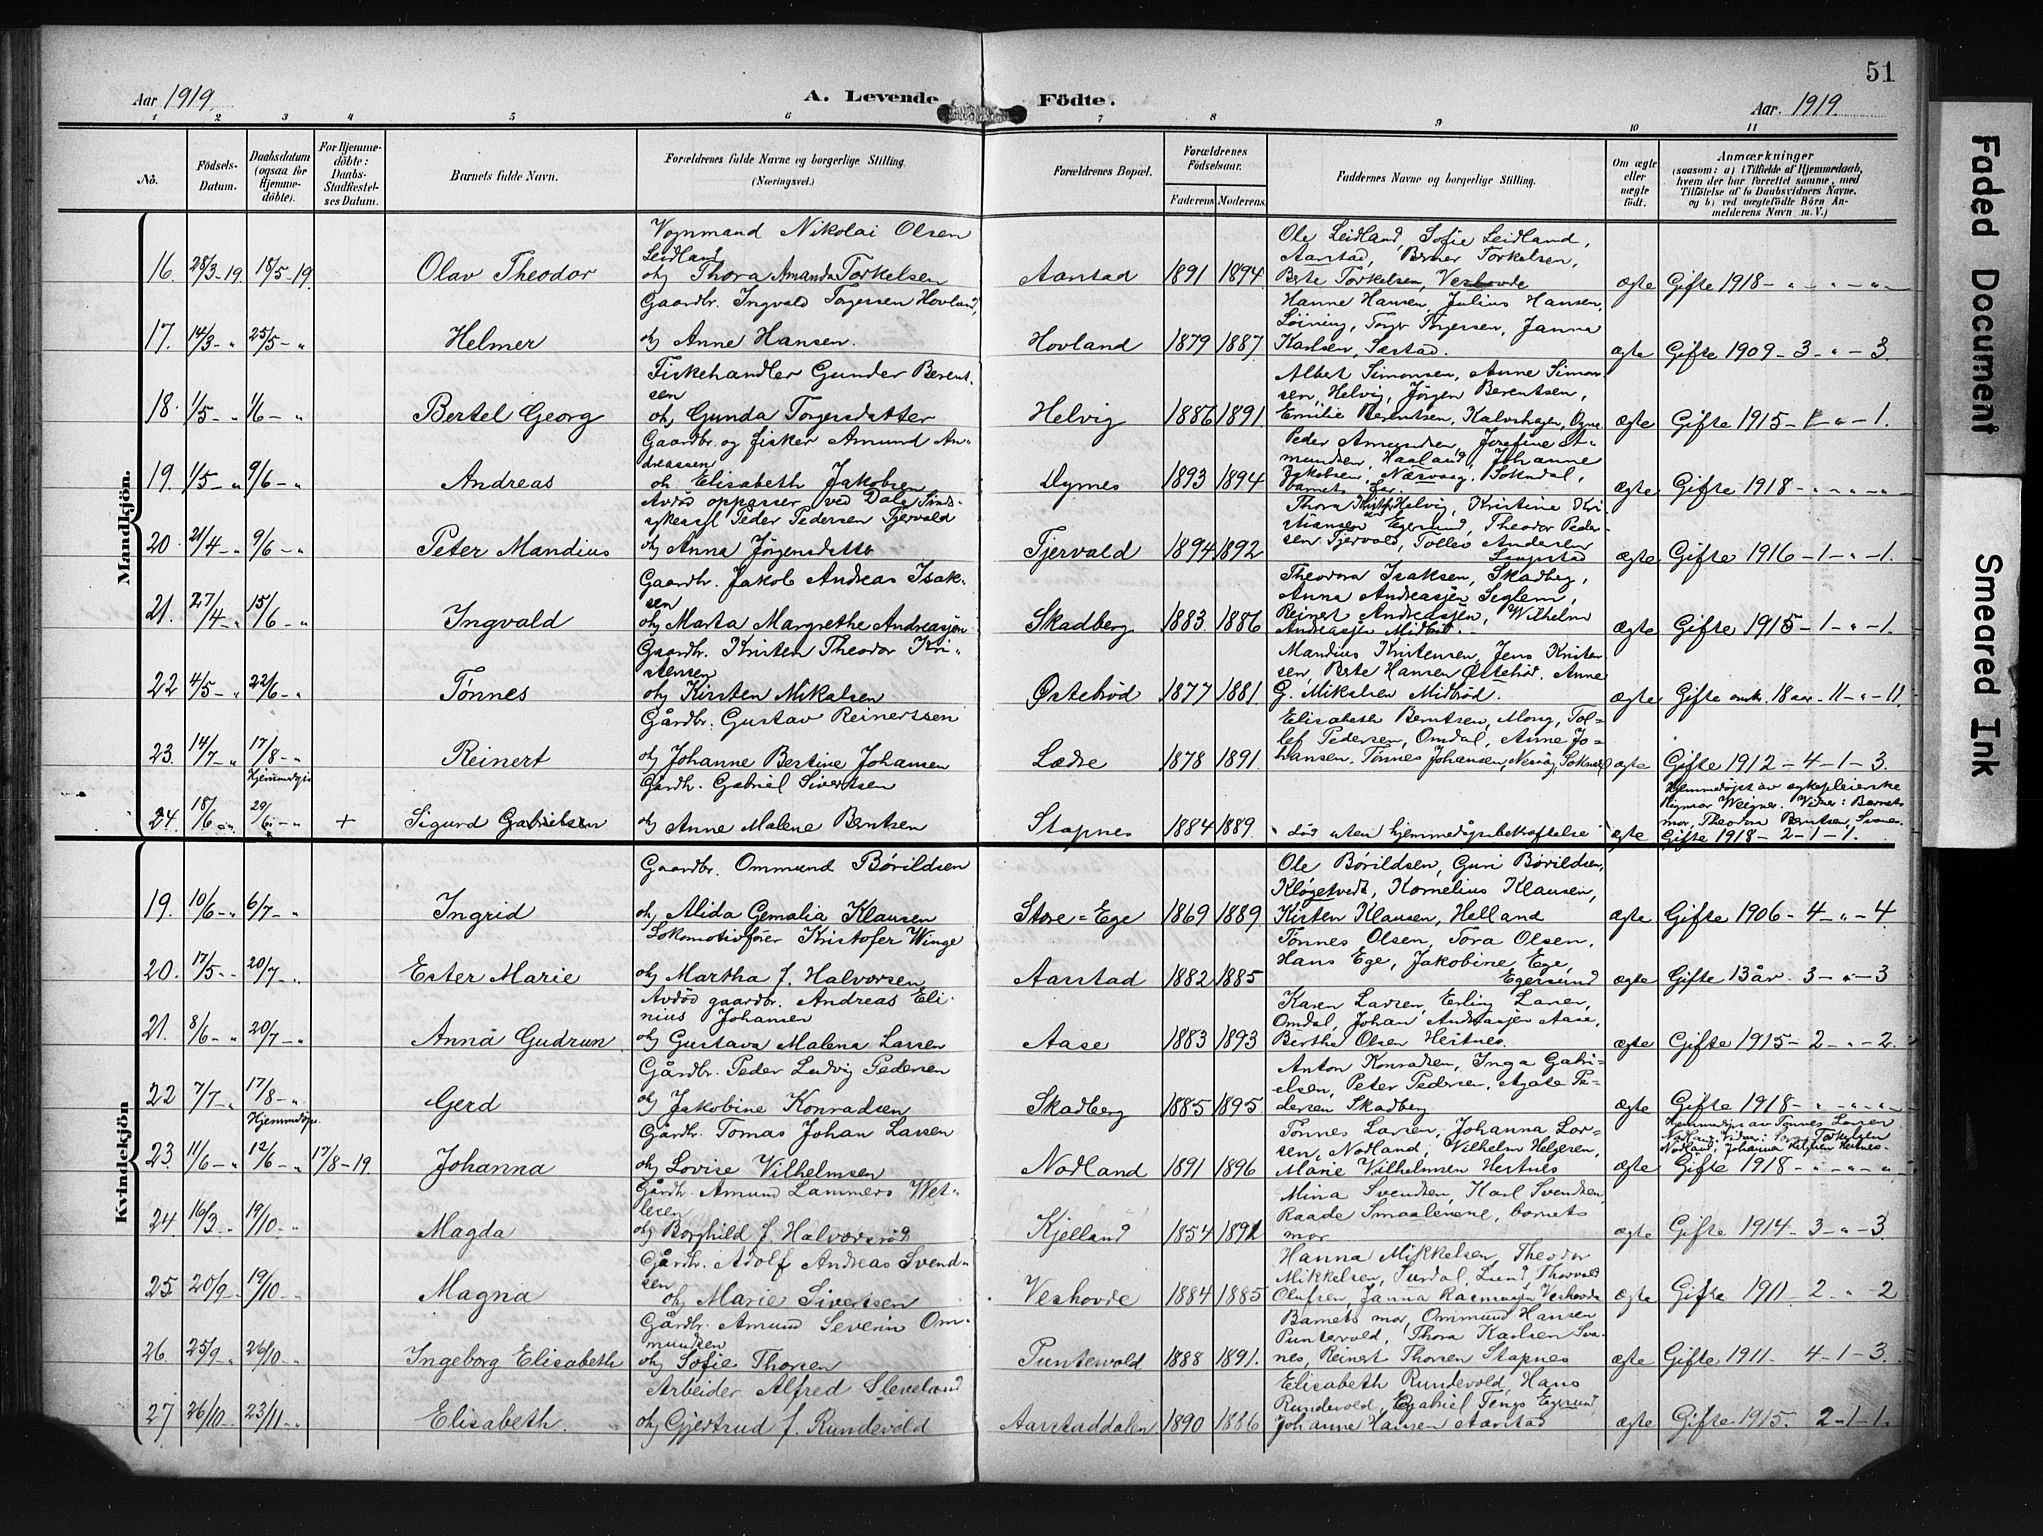 51
Aar 1919.
A. Levende Födte.
Aar. 1919.
1 2 3 4 5 6 7 8 9 10 11
No.
Födsels-Datum.
Daabsdatum (ogsaa for Hjemme-döbte).
For Hjemme-döbte: Daabs-Stadfæstel-ses Datum.
Barnets fulde Navn.
Forældrenes fulde Navne og borgerlige Stilling. (Næringsvei.)
Forældrenes Bopæl.
Forældrenes Födselsaar.
Faderens Moderens.
Faddernes Navne og borgerlige Stilling.
Om ægte eller uægte födt.
Anmærkninger
(saasom: a) i Tilfælde af Hjemmedaab, hvem der har forrettet samme, med Tilföielse af to Daabsvidners Navne, og b) ved uægtefödte Börn An-melderens Navn m. V.)
Mandkjön.
16. 28/3-19. 18/5-19. Olav Theodor
Vognmand Nikolai Olsen
Leidland
og Thora Amanda Torkelsen
Aarstad 1891 1894
Ole Leidland, Sofie Leidland,
Aarstad, Berner Torkelsen,
Berte Torkelsen, Veshovde
ægte Gifte 1918 - " - " - " -
17. 14/3 - " 25/5 - " Helmer
Gaardbr. Ingvald Torgersen Hovland,
og Anne Hansen.
Hovland 1879 1887
Hanne Hansen, Julius Hansen,
Löining, Torger Torgersen, Janna
Karlsen, Sæstad.
ægte Gifte 1909 - 3 - " - 3.
18. 1/5 - " 1/6 - " Bertel Georg
Fiskehandler Gunder Berent-
sen
og Gunda Torgersdatter
Helvig 1886 1891
Albert Simonsen, Anne Simon-
sen, Helvig, Jörgen Berentsen,
Emilie Berntsen, Kalvshagen, Ogne
ægte Gifte 1915 - 1 - " - 1.
19. 1/5 - " 9/6 - " Andreas
Gaardbr. og fisker Amund An-
dreassen
og Elisabeth Jakobsen
Dymes 1893 1894
Peder Amundsen, Josefine A-
mundsen, Haaland, Johanne
Jakobsen, Næsvaag, Sokndal,
barnets far.
ægte Gifte 1918 - " - " - " -
20. 21/4 - " 9/6 - " Peter Mandius
Avdöd oppasser ved Dale Sinds-
sykeasyl Peder Pedersen Tjervald
og Anna Jörgensdatter
Tjervald 1894 1892
Thora Helvig, Kristine Kri-
stiansen Egersund, Theodor Peder-
sen Tjervald, Tolleo Andersen
ægte Gifte 1916 - 1 - " - 1.
21. 27/4 - " 15/6 - " Ingvald
Gaardbr. Jakob Andreas Isak-
sen
og Marta Margrethe Andreassen
Skadberg 1883 1886
Theodora Isaksen, Skadberg,
Anna Andreasjen Seglem,
Reinert Andreassen, Wilhelm
Andreasjen Midbröd.
ægte Gifte 1915 - 1 - " - 1.
22 4/5 - " 22/6 - " Tönnes
Gaardbr. Kristen Theodor Kri-
stensen
og Kirsten Mikalsen
Östebröd 1877 1881.
Mandius Kristensen, Jens Kristen-
sen, Berte Hansen Östebröd, Anne
G. Mikalsen Midbröd.
ægte Gifte omtr. 18 aar - 11 - " - 11.
23. 14/7 - " 17/8 - " Reinert
Gårdbr. Gustav Reinertsen
og Johanne Bertine Johansen
Lædre 1878 1891
Elisabeth Berntsen, Mong, Tol-
lef Pedersen, Omdal, Anne Jo-
hansen. Tönnes Johansen, Nesvåg, Sokndal
ægte Gifte 1912 - 4 - 1 - 3.
24. 18/6 - " Hjemmedöpt 29/6 - " + Sigurd Gabrielsen
Gårdbr. Gabriel Sivertsen
og Anne Malene Berntsen
Stapnes 1884 1889
död uten hjemmedåpsbekæftelse
ægte
Hjemmedöpt av sykepleierske
Rigmor Weigner. Vidner: Barnets
mor, Theodora Berntsen, Svanes
Gifte 1918 - 2 - 1 - 1.
Kvindekjön
19. 10/6 - " 6/7 - " Ingrid
Gaardbr. Ommund Börildsen
og Alida Gemalia Klausen
Store-Ege 1869 1889
Ole Börildsen, Guri Börildsen,
Klögetvedt, Kornelius Klausen,
Kirsten Klausen, Helland
ægte Gifte 1906 - 4 - " - 4
20. 17/5 - " 20/7 - " Ester Marie
Lokomotivförer Kristofer Winge
og Martha f. Halvorsen
Aarstad 1882 1885
Tönnes Olsen, Tora Olsen,
Hans Ege, Jakobine Ege,
Egersund
ægte Gifte 13 år - 3 - " - 3
21. 8/6 - " 20/7 - " Anna Gudrun
Avdöd gaardbr. Andreas Eli-
nius Johansen
og Gustava Malena Larsen
Aase 1883 1893
Karen Larsen, Erling Larsen,
Omdal, Johan Andreasjen Aase,
Berthe Olsen Hestnes.
ægte Gifte 1915 - 2 - " - 2.
22 7/7 - " 17/8 - " Gerd
Gårdbr. Peder Ludvig Pedersen
og Jakobine Konradsen
Skadberg 1885 1895
Anton Konradsen, Inga Gabri-
elsen, Peter Pedersen, Agate Pe-
dersen Skadberg
ægte Gifte 1918 - " - " - " -
23. 11/6 - " Hjemmedöpt. 12/6 - " 17/8-19. Johanna
Gårdbr. Tomas Johan Larsen
og Lovise Vilhelmsen
Nodland 1891 1896
Tönnes Larsen, Johanna Lar-
sen, Nodland, Vilhelm Helgesen,
Marie Vilhelmsen Hestnes
ægte
Hjemmedöpt av Tönnes Larsen
Nodland. Vidner: Torkelsen
Nodland, Johanna Helgesen Hestnes.
Gifte 1918 - " - " - " -
24. 16/3 - " 19/10 - " Magda
Gårdbr. Amund Lammers Wet-
lesen
og Borghild f. Halvorsröd
Kjelland 1854 1891
Mina Svendsen, Karl Svendsen,
Raade Smaalenene, barnets
mor
ægte Gifte 1914 - 3 - " - 3
25 20/9 - " 19/10 - " Magna
Gårdbr. Adolf Andreas Svend-
sen
og Marie Sivertsen
Veshovde 1884 1885
Hanna Mikkelsen, Theodor
Mikkelsen, Surdal, Lund, Thorvald
Olufsen, Janna Rasmussen Veshovde
ægte Gifte 1911 - 2 " - 2
26. 25/9 " 26/10 - " Ingeborg Elisabeth
Gårdbr. Amund Severin Om-
mundsen
og Sofie Thorsen
Puntervold 1888 1891.
Barnets mor, Ommund Hansen
Puntervold, Thora Karlsen Sva-
nes, Reinert Thorsen Stapnes
ægte Gifte 1911 - 4 - 1 - 3.
27 26/10 - " 23/11 - " Elisabeth
Arbeider Alfred Sleveland
og Gjertrud f. Rundevold
Aarstaddalen 1890 1886
Elisabeth Rundevold, Hans
Rundevold, Gabriel Tengs Egersund,
Johanne Hansen Aarstad
ægte Gifte 1915. 2 - 1 - 1.
Faded Document
Smeared Ink